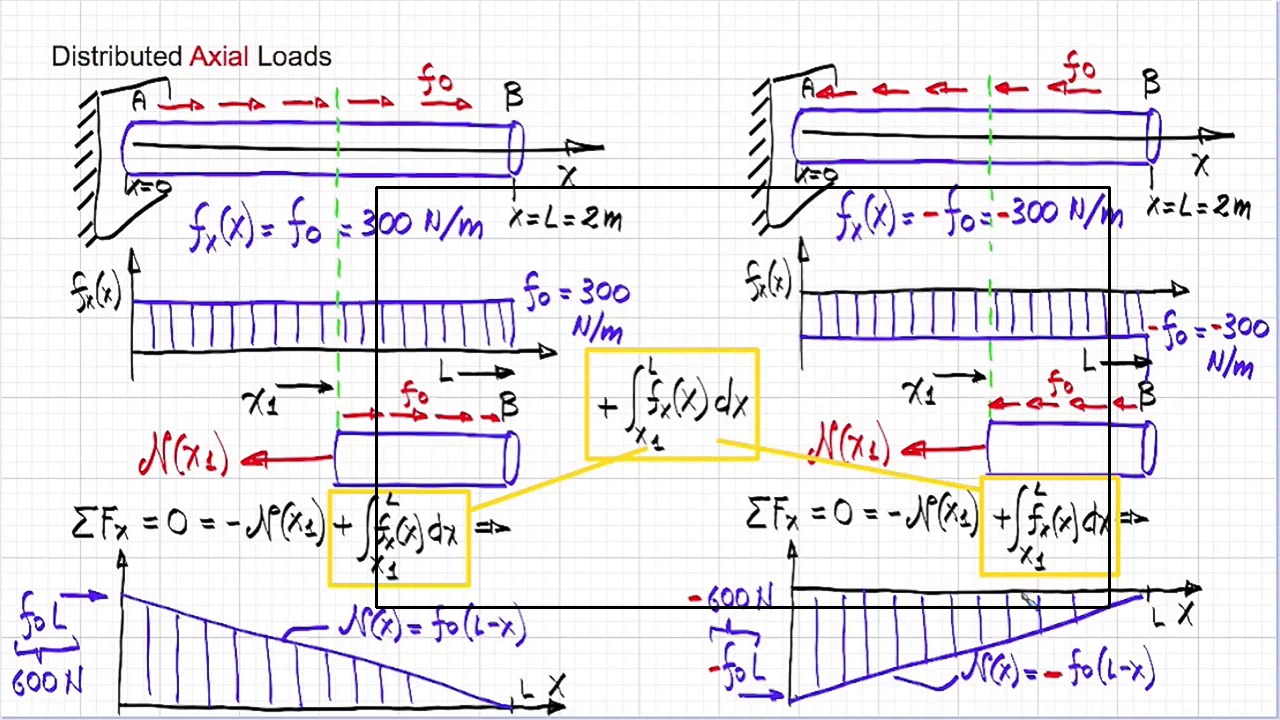 Distributed Axial Loads
A f0 B
x=0 X
fx(x) = f0 = 300 N/m x = L = 2m
fx(x) f0 = 300 N/m
L
x1 f0 B
N(x1)
ΣFx = 0 = -N(x1) + ∫x1^L fx(x) dx ⇒
f0L
600 N
N(x) = f0(L-x)
L X
+ ∫x1^L fx(x) dx
A f0 B
x=0 X
fx(x) = -f0 = -300 N/m x = L = 2m
fx(x) -f0 = -300 N/m
L
x1 f0 B
N(x1)
ΣFx = 0 = -N(x1) + ∫x1^L fx(x) dx ⇒
-600 N
-f0L
L X
N(x) = -f0(L-x)